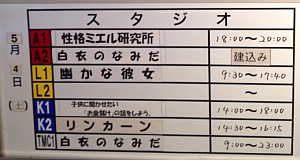 スタジオ
5月4日(土)
A1 性格ミエル研究所 18:00〜20:00
A2 白衣のなみだ 建込み
L1 幽かな彼女 9:30〜17:40
L2 〜
K1 子供に聞かせたい「お金儲け」の話をしよう。 14:00〜18:00
K2 リンカーン 14:30〜16:15
TMC1 白衣のなみだ 9:00〜23:00